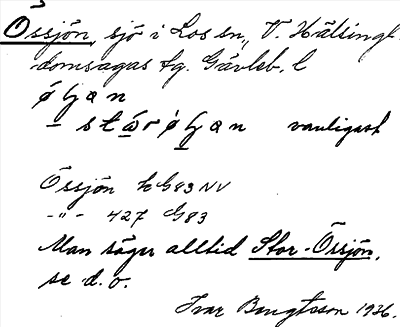 Össjön, sjö i Los sn, V. Hälsingl.
domsagas tg. Gävleb. l
vanligast
Össjön hG83 NV
-"- 427 G83
Man säger alltid Stor-Össjön,
se d. o.
Ivar Bengtsson 1936.